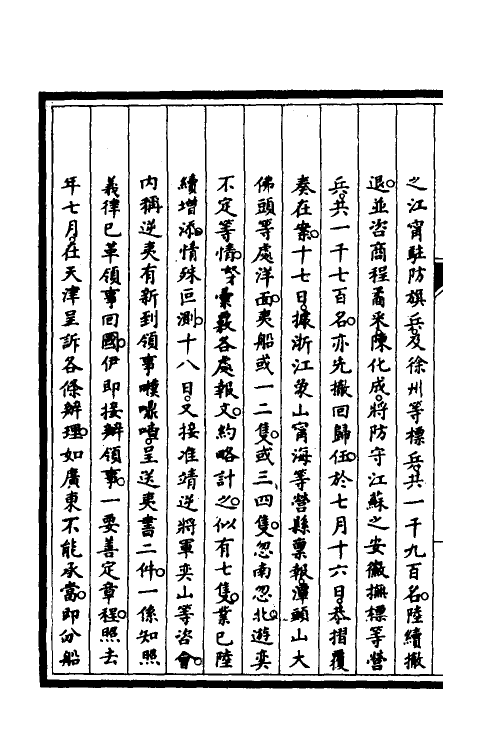 之江甯駐防旗兵及徐州等標兵共一千九百名陸續撤
退並咨商程矞采陳化成將防守江蘇之安徽撫標等營
兵共一千七百名亦先撤回歸伍於七月十六日恭摺覆
奏在案十七日據浙江象山甯海等營縣稟報潭頭山大
佛頭等處洋面夷船或一二隻或三四隻忽南忽北遊奕
不定等情彙覈各處報文約略計之似有七隻業已陸
續增添情殊叵測十八日又接准靖逆將軍奕山等咨會
內稱逆夷有新到領事噗嚊喳呈送夷書二件一係知照
義律已革領事回國伊即接辦領事一要善定章程照去
年七月在天津呈訴各條辦理如廣東不能承當即分船